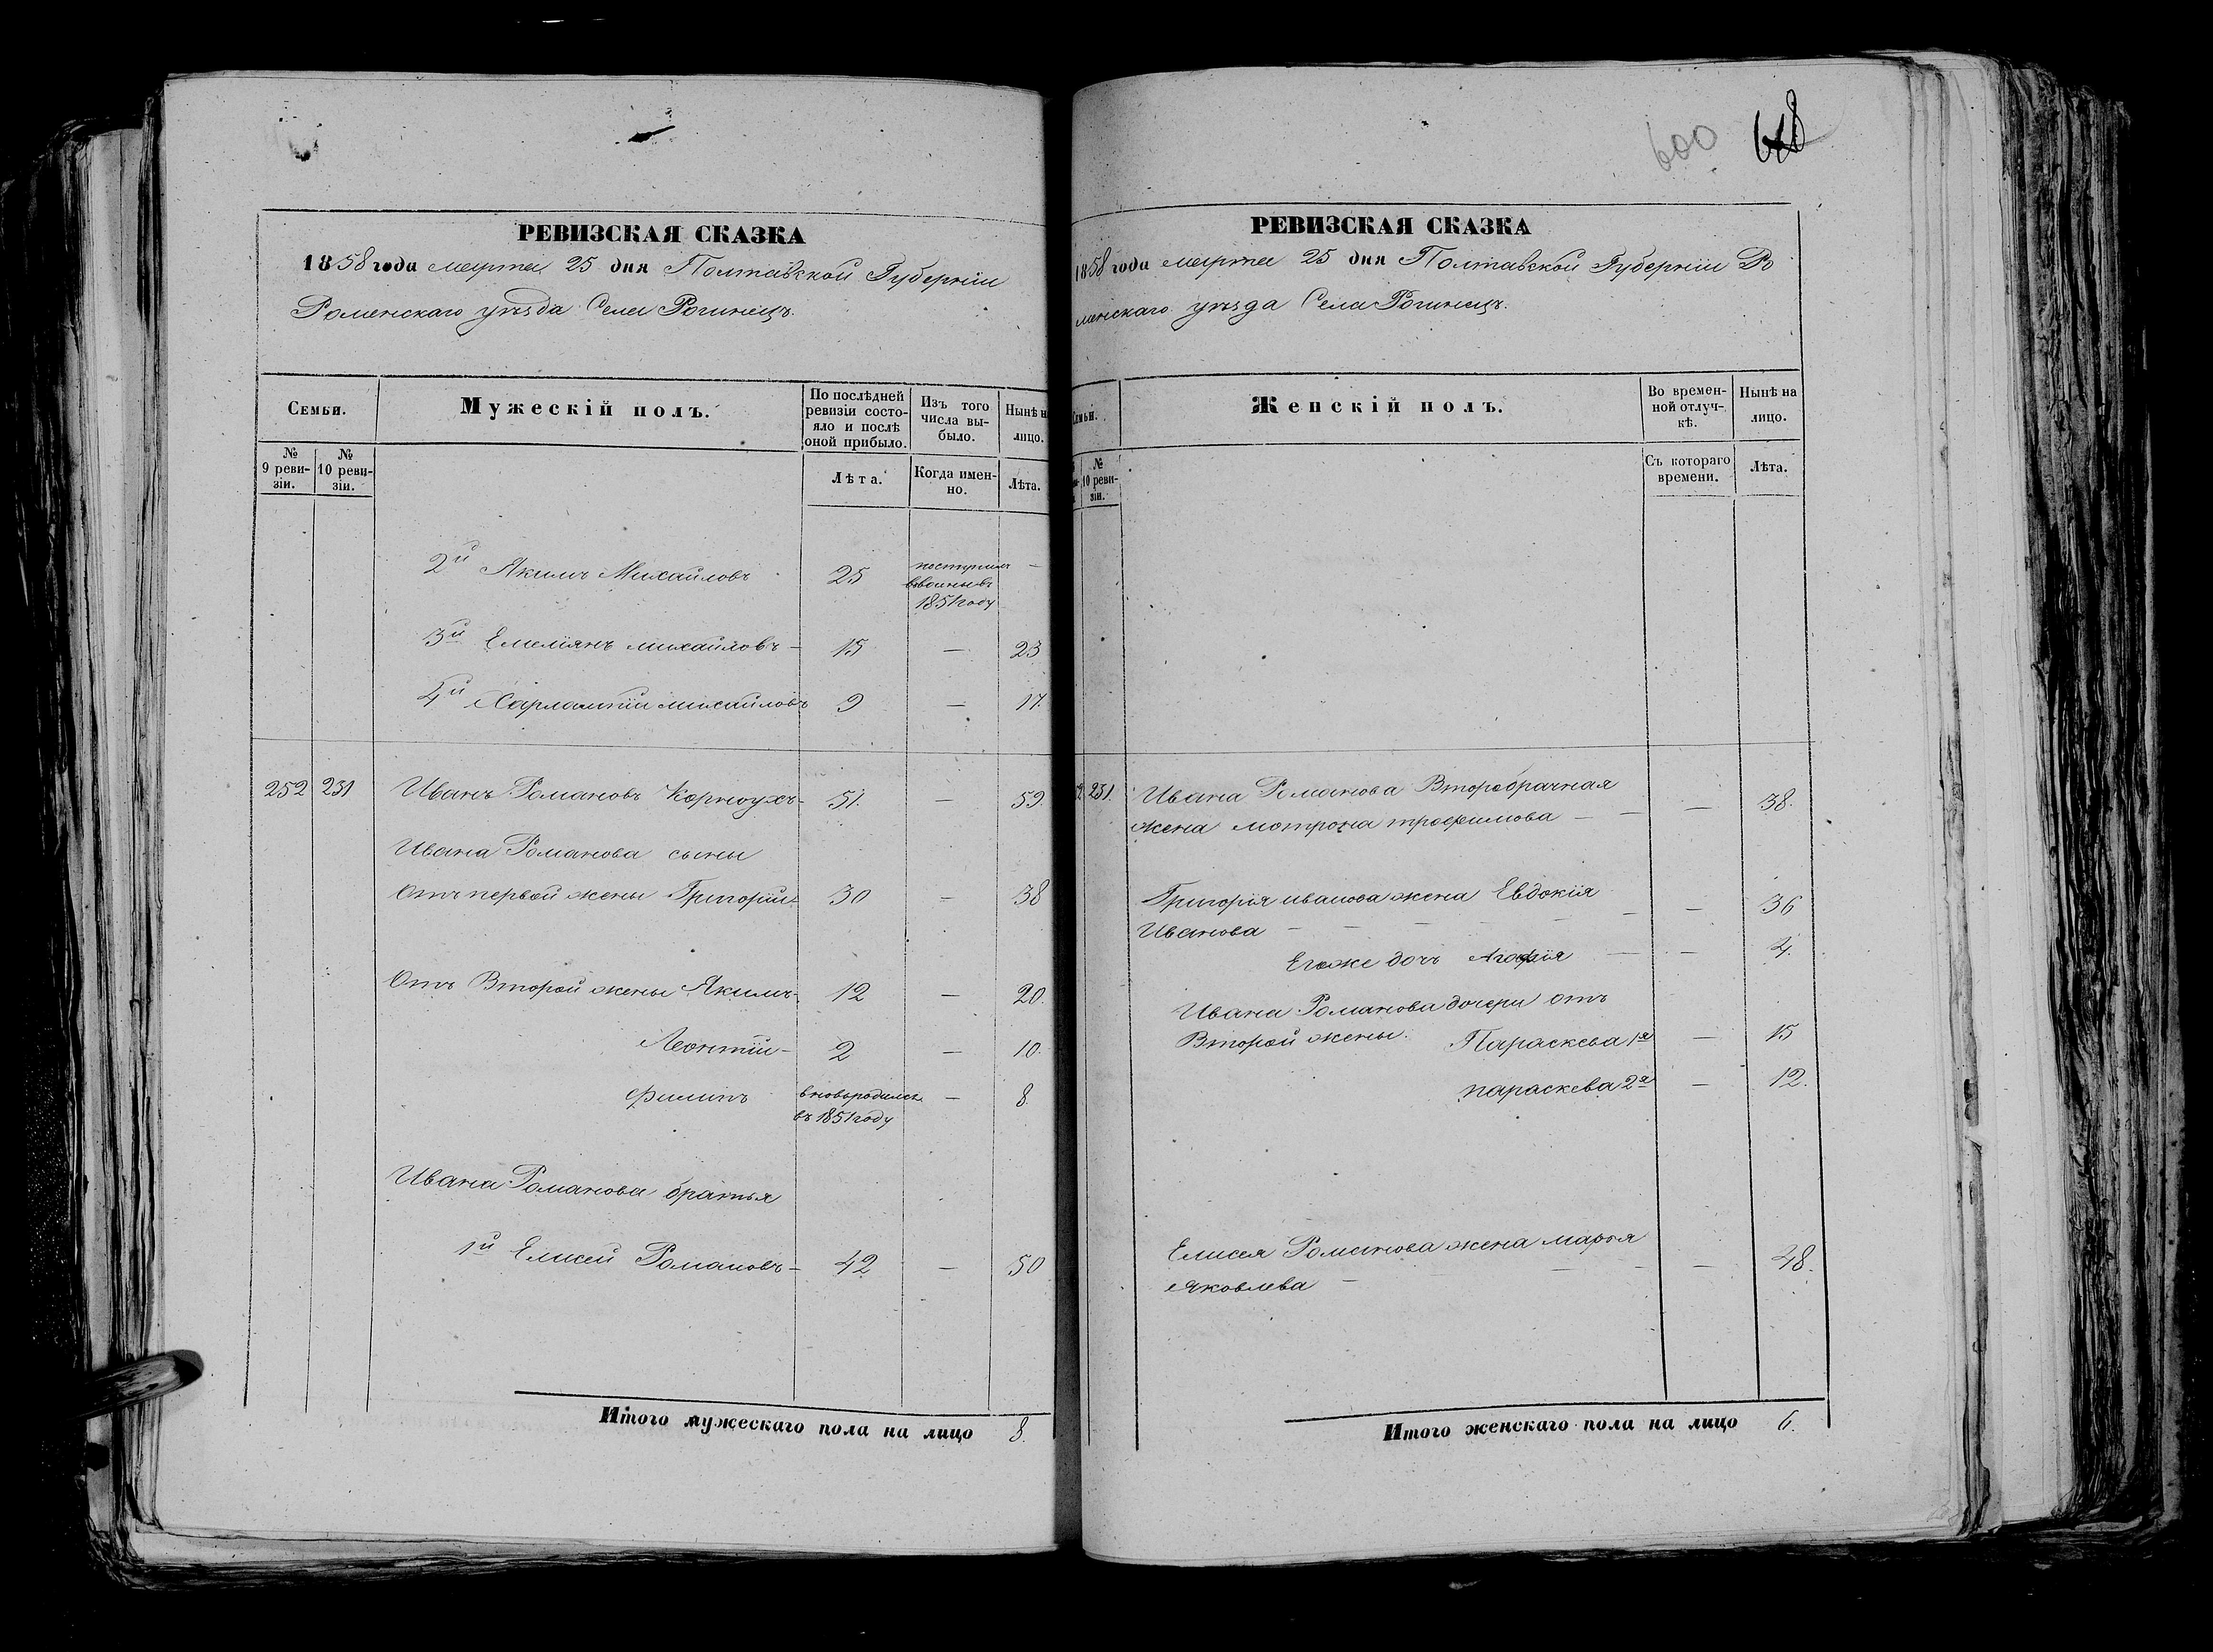 600 618
РЕВИЗСКАЯ СКАЗКА
1858 года марта 25 дня Полтавской Губерніи
Роменскаго уѣзда Села Рогинецъ.
Семьи.
№ 9 реви-зіи.
№ 10 реви-зіи.
Мужескій полъ.
По послѣдней ревизіи состо-яло и послѣ оной прибыло.
Лѣта.
Изъ того числа вы-было.
Когда имен-но.
Нынѣ на лицо.
Лѣта.
2й Якимъ Михайловъ 25 поступилъ
1851 году
3й Емеліянъ михайловъ - 15 — 23
4й Харлампій михайловъ 9 — 17.
252 231 Иванъ Романовъ Корноухъ - 51. — 59.
Ивана Романова сыны
Отъ первой жены Григорій 30 — 38
Отъ Второй жены Якимъ - 12 — 20.
Леонтій - 2 — 10.
Филипъ вновьродился — 8.
въ 1851 году
Ивана Романова братья
1й Елисей Романовъ - 42 — 50
Итого мужескаго пола на лицо 8.
РЕВИЗСКАЯ СКАЗКА
1858 года марта 25 дня Полтавской Губерніи Ро
менскаго уѣзда Села Рогинецъ.
Семьи.
№ 10 реви-зіи.
Женскій полъ.
Во времен-ной отлуч-кѣ.
Съ котораго времени.
Нынѣ на лицо.
Лѣта.
2 231. Ивана Романова Второбрачная
жена мотрона трофимова — — 38.
Григорія иванова жена Евдокія
Иванова — — — — — — 36
Егоже дочь Агафія — — 4.
Ивана Романова дочери отъ
Второй жены. Параскева 1я — 15
параскева 2я — 12.
Елисея Романова жена марья
Яковлева — — — — — 48.
Итого женскаго пола на лицо 6.